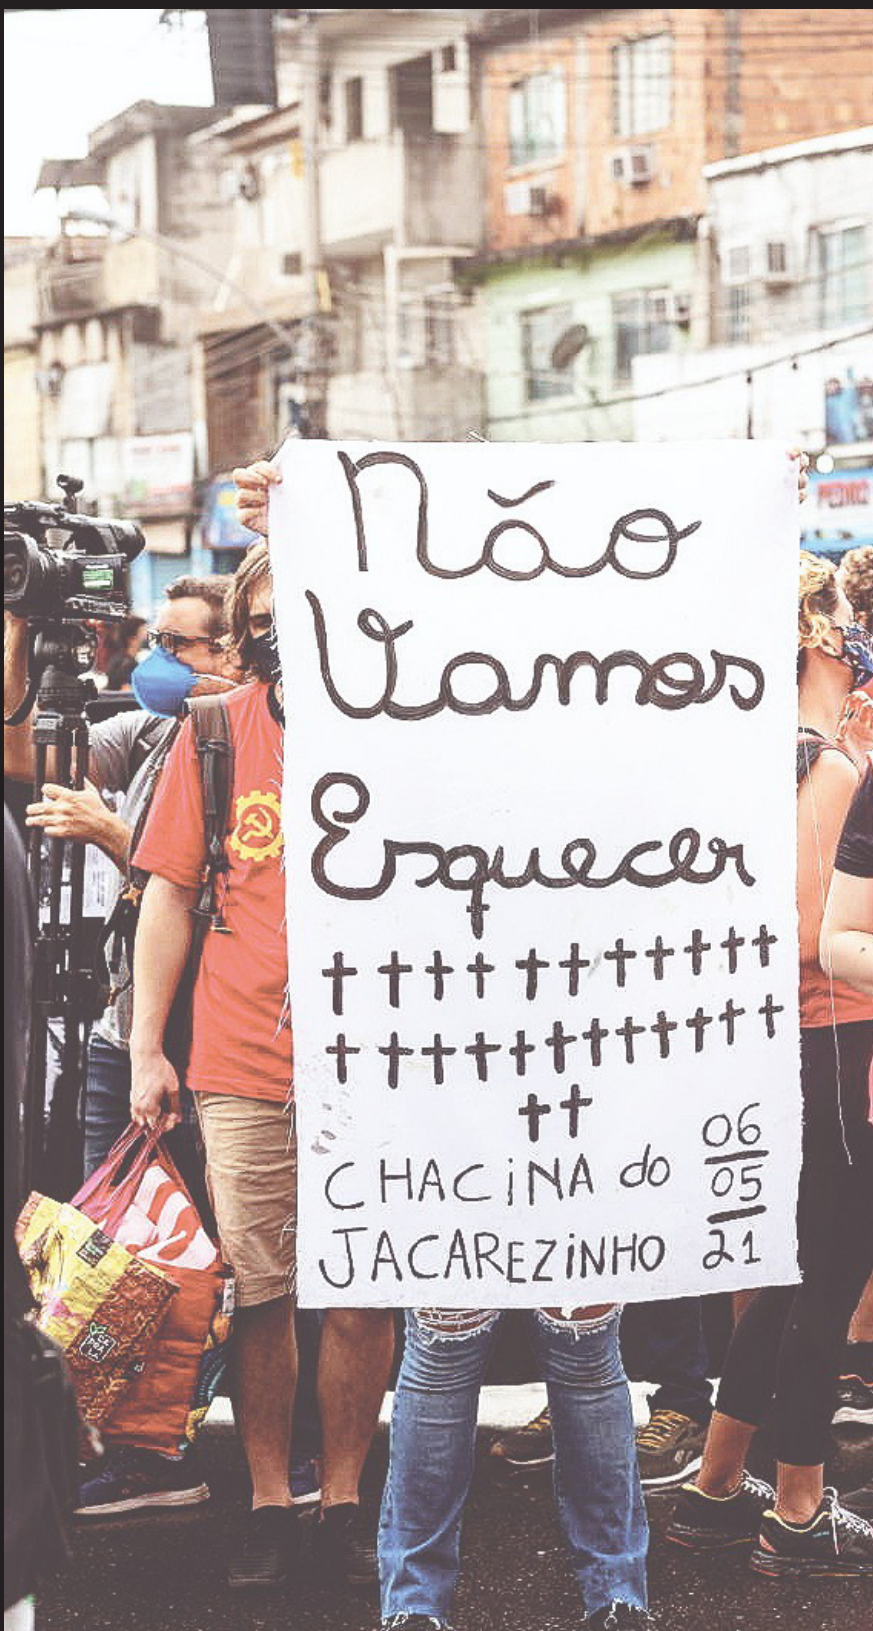 Não
Vamos
Esquecer
CHACiNA do
JACAREZiNHO
06
05
21